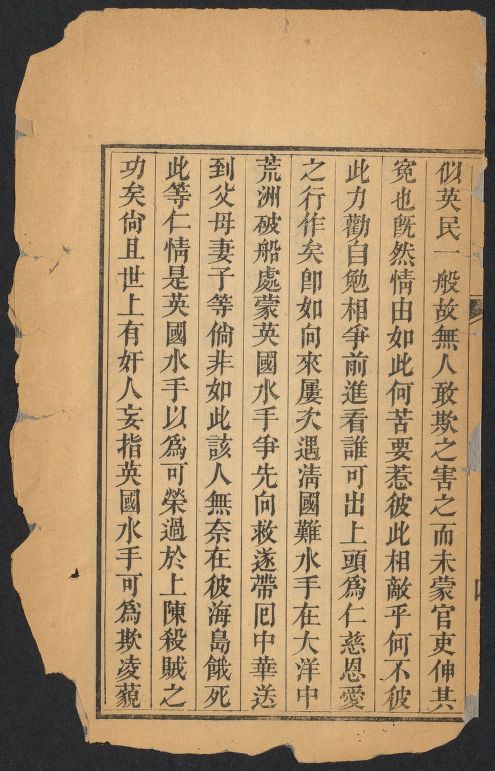 似英民一般故無人敢欺之害之而未蒙官吏伸其
寃也旣然情由如此何苦要惹彼此相敵乎何不彼
此力勸自勉相爭前進看誰可出上頭爲仁慈恩愛
之行作矣卽如向來屢次遇淸國難水手在大洋中
荒洲破船處蒙英國水手爭先向救遂帶囘中華送
到父母妻子等倘非如此該人無奈在彼海島餓死
此等仁情是英國水手以爲可榮過於上陳殺賊之
功矣尙且世上有奸人妄指英國水手可爲欺凌藐